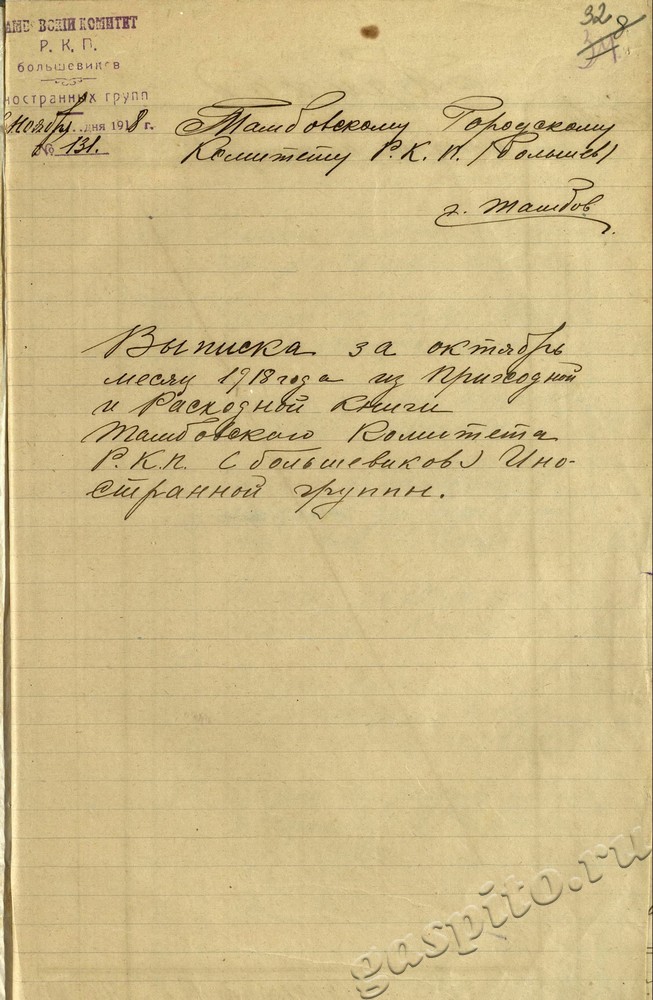 ТАМБ ВСКІЙ КОМИТЕТ
Р. К. П.
большевиков
ностранных групп
Ноября дня 1918 г.
№ 131.
32
Тамбовскому Городскому
Комитету Р. К. П. (большев)
г. Тамбов
Выписка за октябрь
месяц 1918 года из Приходной
и Расходной книги
Тамбовского Комитета
Р.К.П. (большевиков) Ино-
странной группы.
gaspito.ru